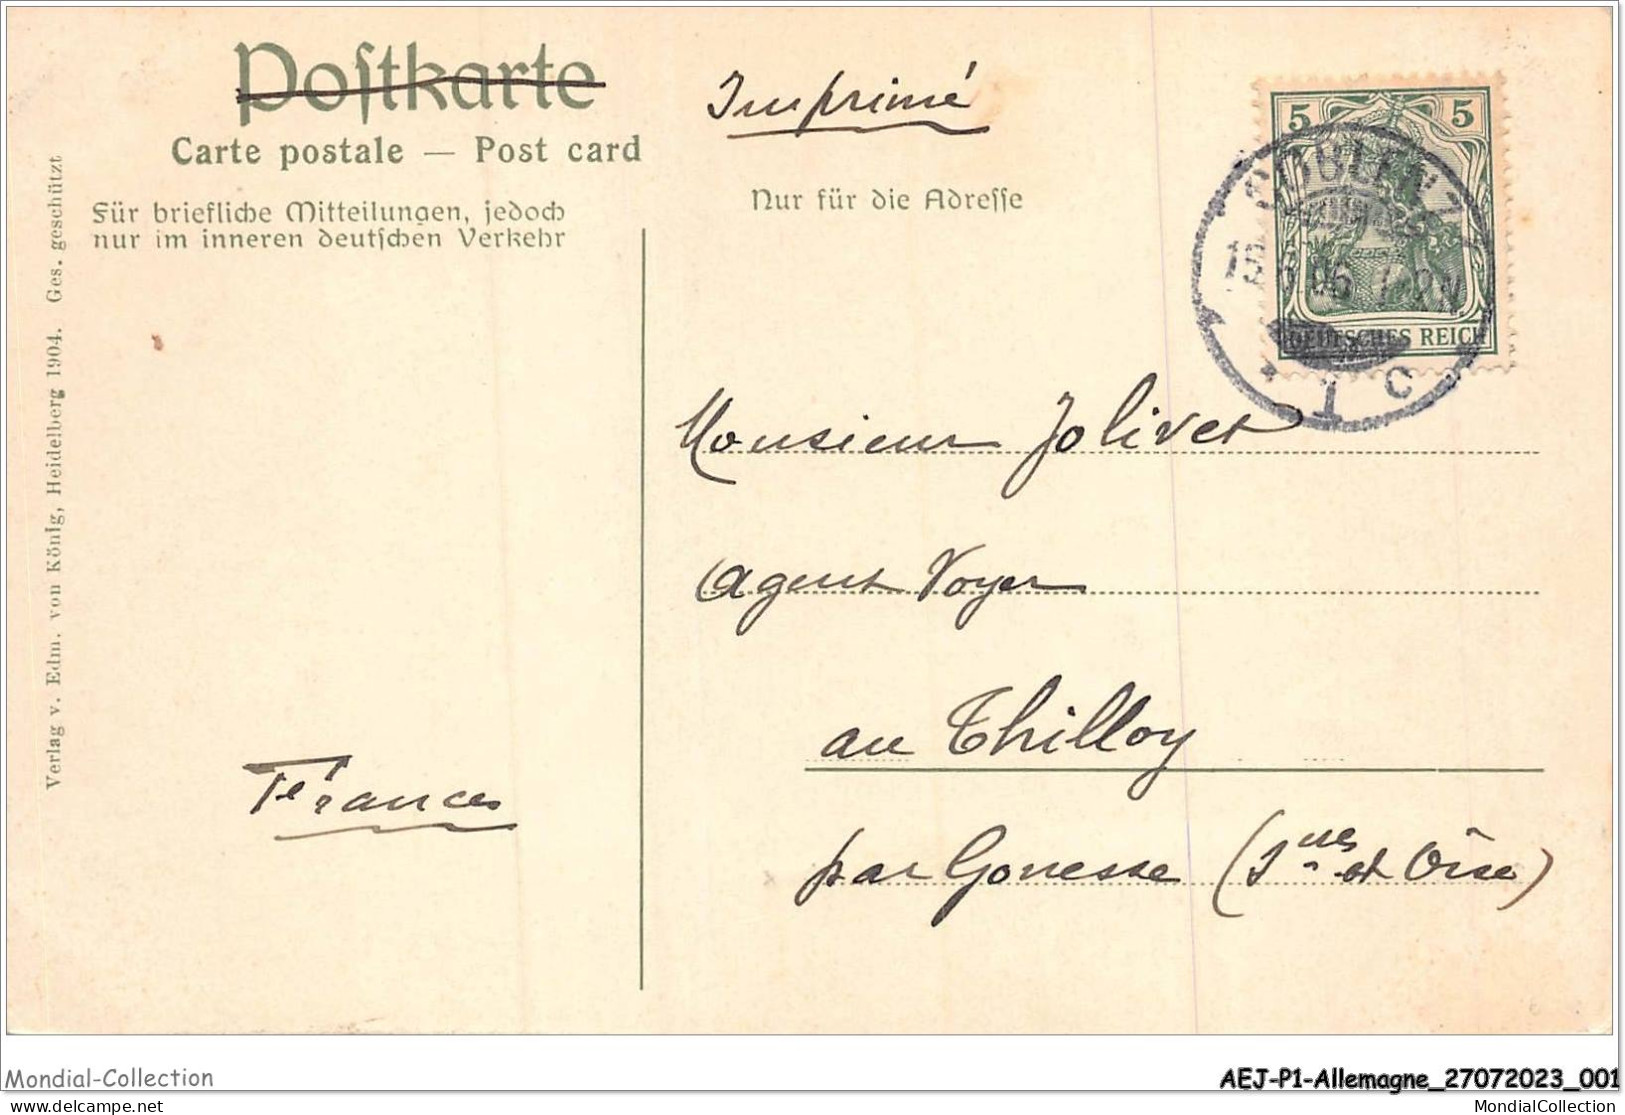 Postkarte
Carte postale — Post card
Für briefliche Mitteilungen, jedoch
nur im inneren deutschen Verkehr
Verlag v. Edm. von König, Heidelberg 1904. Ges. geschützt
Imprimé
Nur für die Adresse
5 5
DEUTSCHES REICH
COBLENZ
1 C
Monsieur Jolivet
agent Voyer
au Thilloy
par Gonesse (S. et Oise)
France
Mondial-Collection
AEJ-P1-Allemagne_27072023_001
delcampe.net
MondialCollection